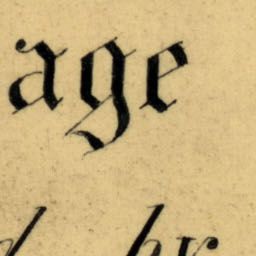 age
by